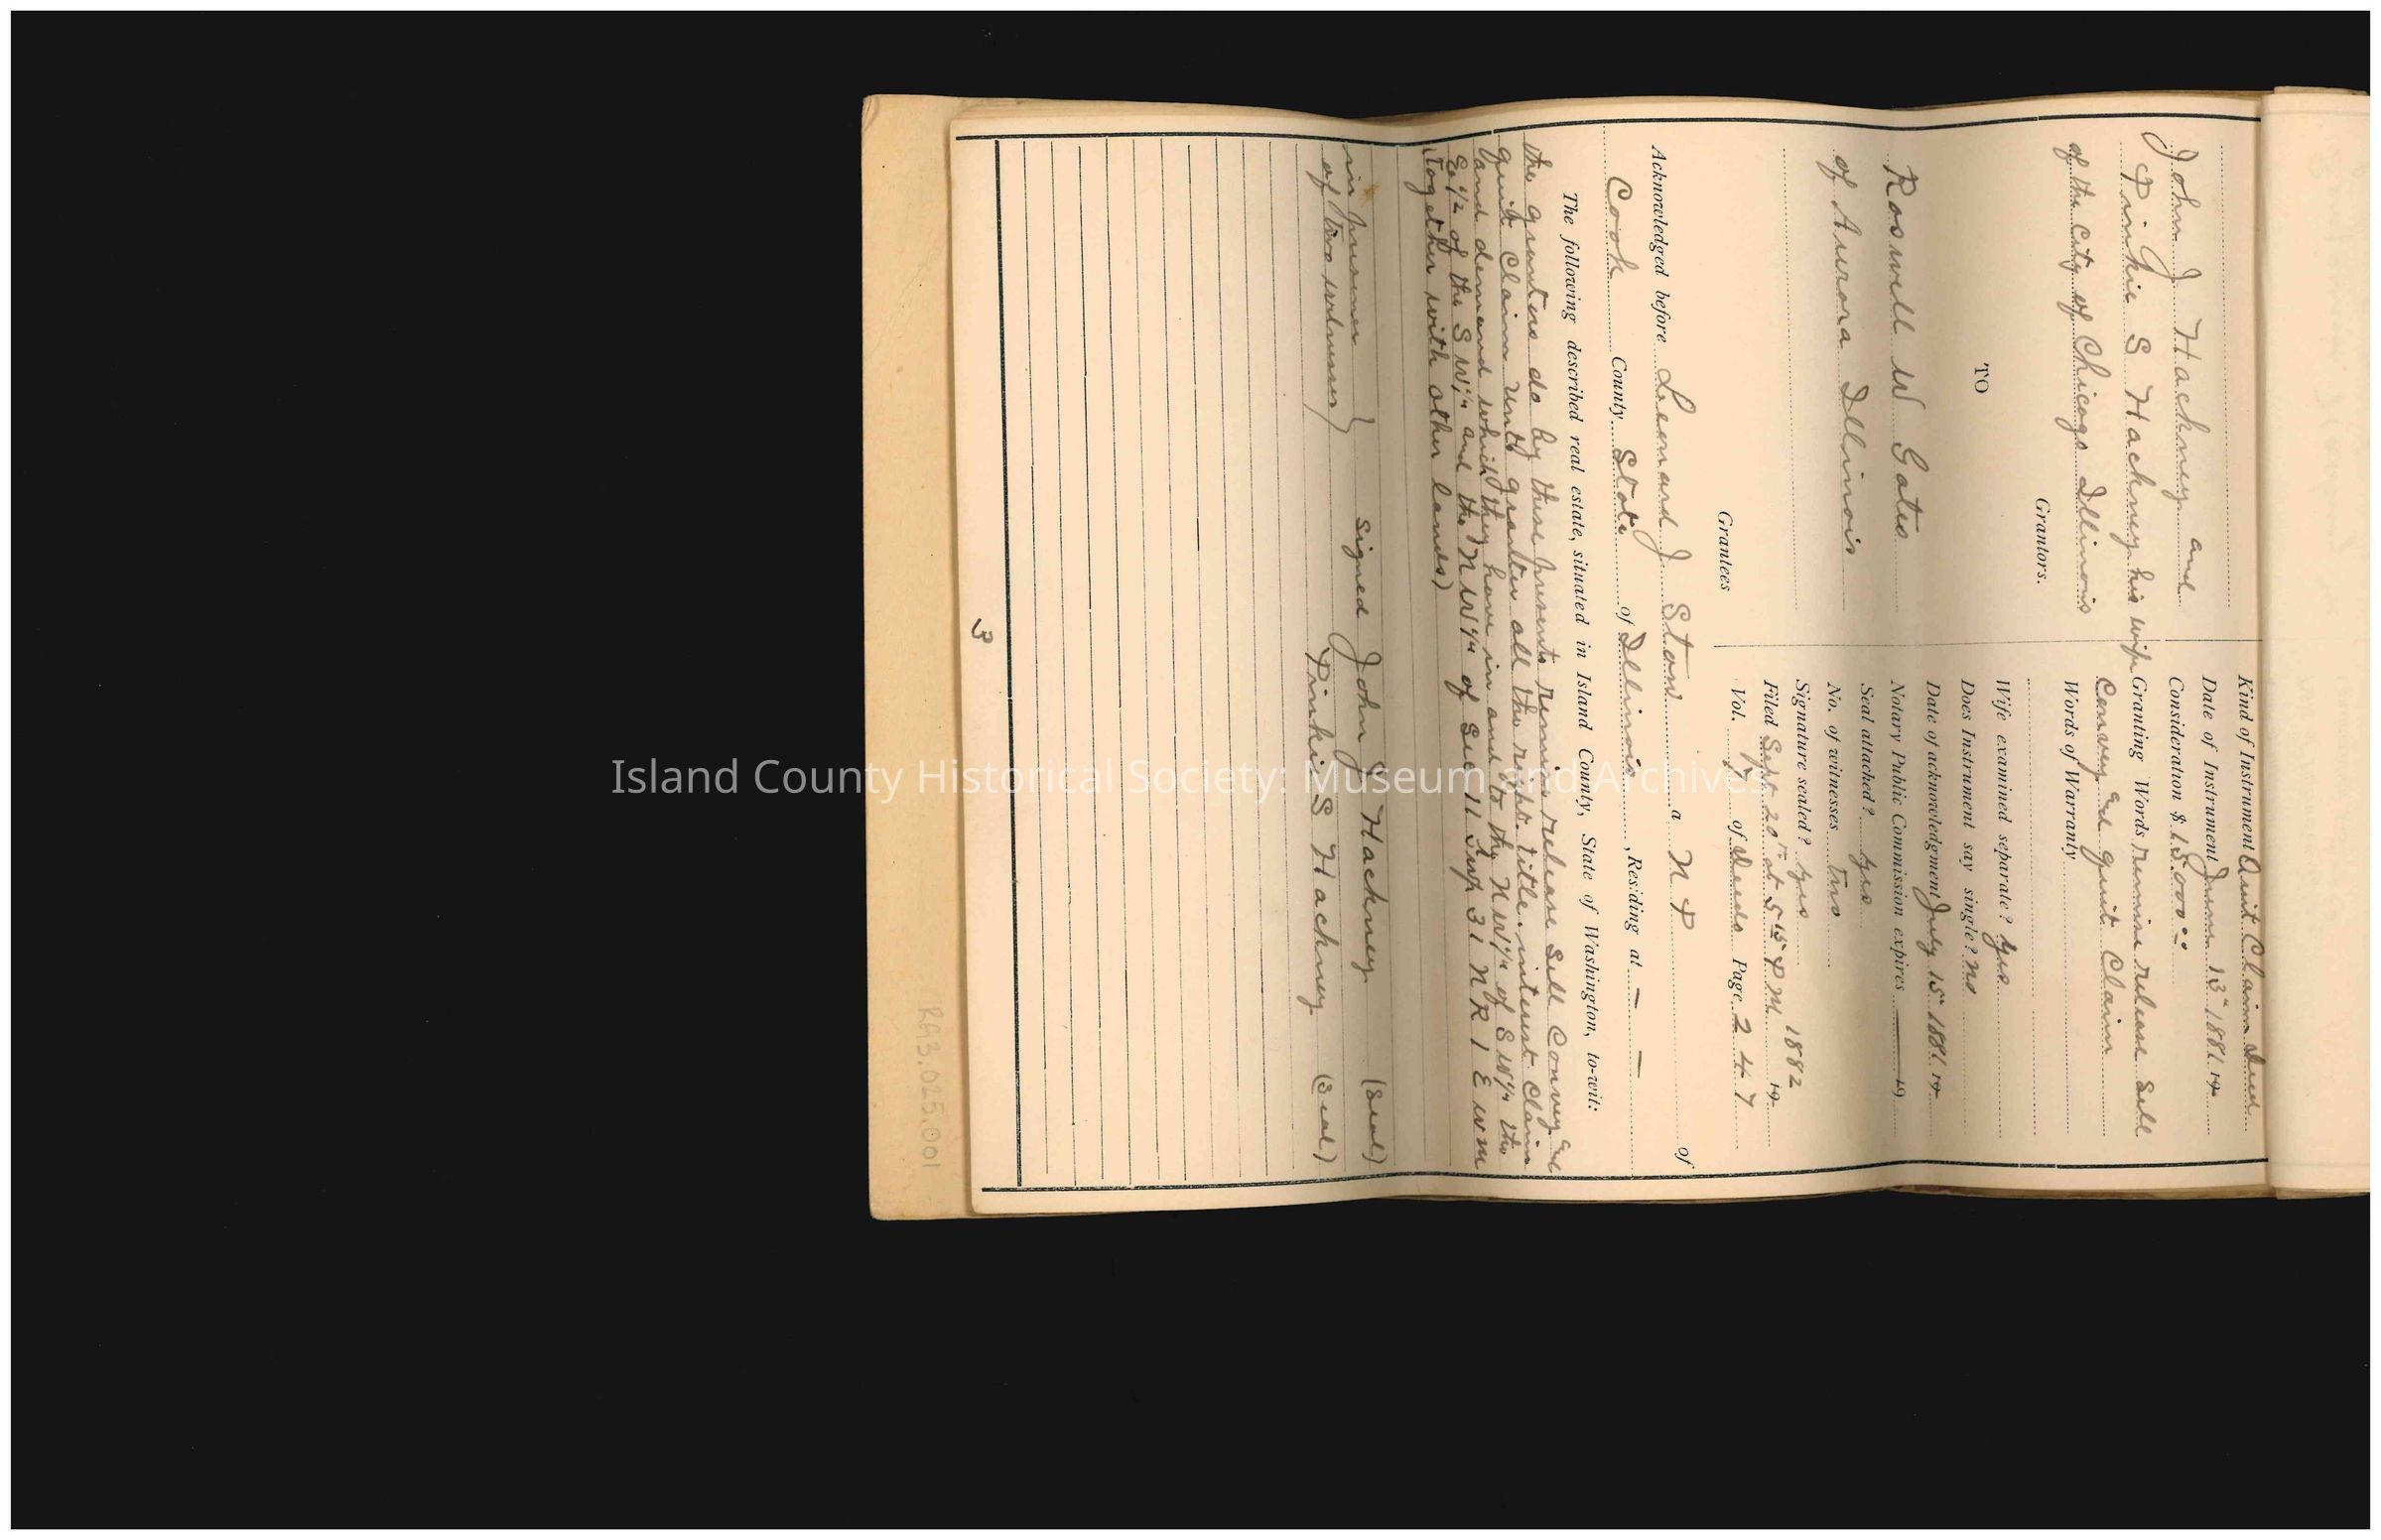 John J Hackney and
Pinkie S Hackney his wife
of the City of Chicago Illinois
Grantors.
TO
Roswell W Gates
of Aurora Illinois
Grantees
Kind of Instrument Quit Claim Deed
Date of Instrument June 13" 1881 19
Consideration $ 15,000 00
Granting Words remise release Sell
Convey and quit Claim
Words of Warranty
Wife examined separate? Yes
Does Instrument say single? no
Date of acknowledgment July 15 1881 19
Notary Public Commission expires — 19
Seal attached? Yes
No. of witnesses Two
Signature sealed? Yes 1882
Filed Sept 20" at 5 15 P M 19
Vol. of Deeds Page 247
Acknowledged before Leonard J Stow a N P of
Cook County State of Illinois, Residing at — —
The following described real estate, situated in Island County, State of Washington, to-wit:
the grantors do by these presents remise release Sell Convey and
quit Claim unto grantee all the right. title. interest Claim
and demand which they have in and to the NW¼ of SW¼ the
E½ of the SW¼ and the NW¼ of Sec 11 Twp 31 N R 1 E WM
(Together with other lands)
in presence }
of two witnesses }
Signed John J Hackney (Seal)
Pinkie S Hackney (Seal)
3
RG3.025.001
Island County Historical Society: Museum and Archives